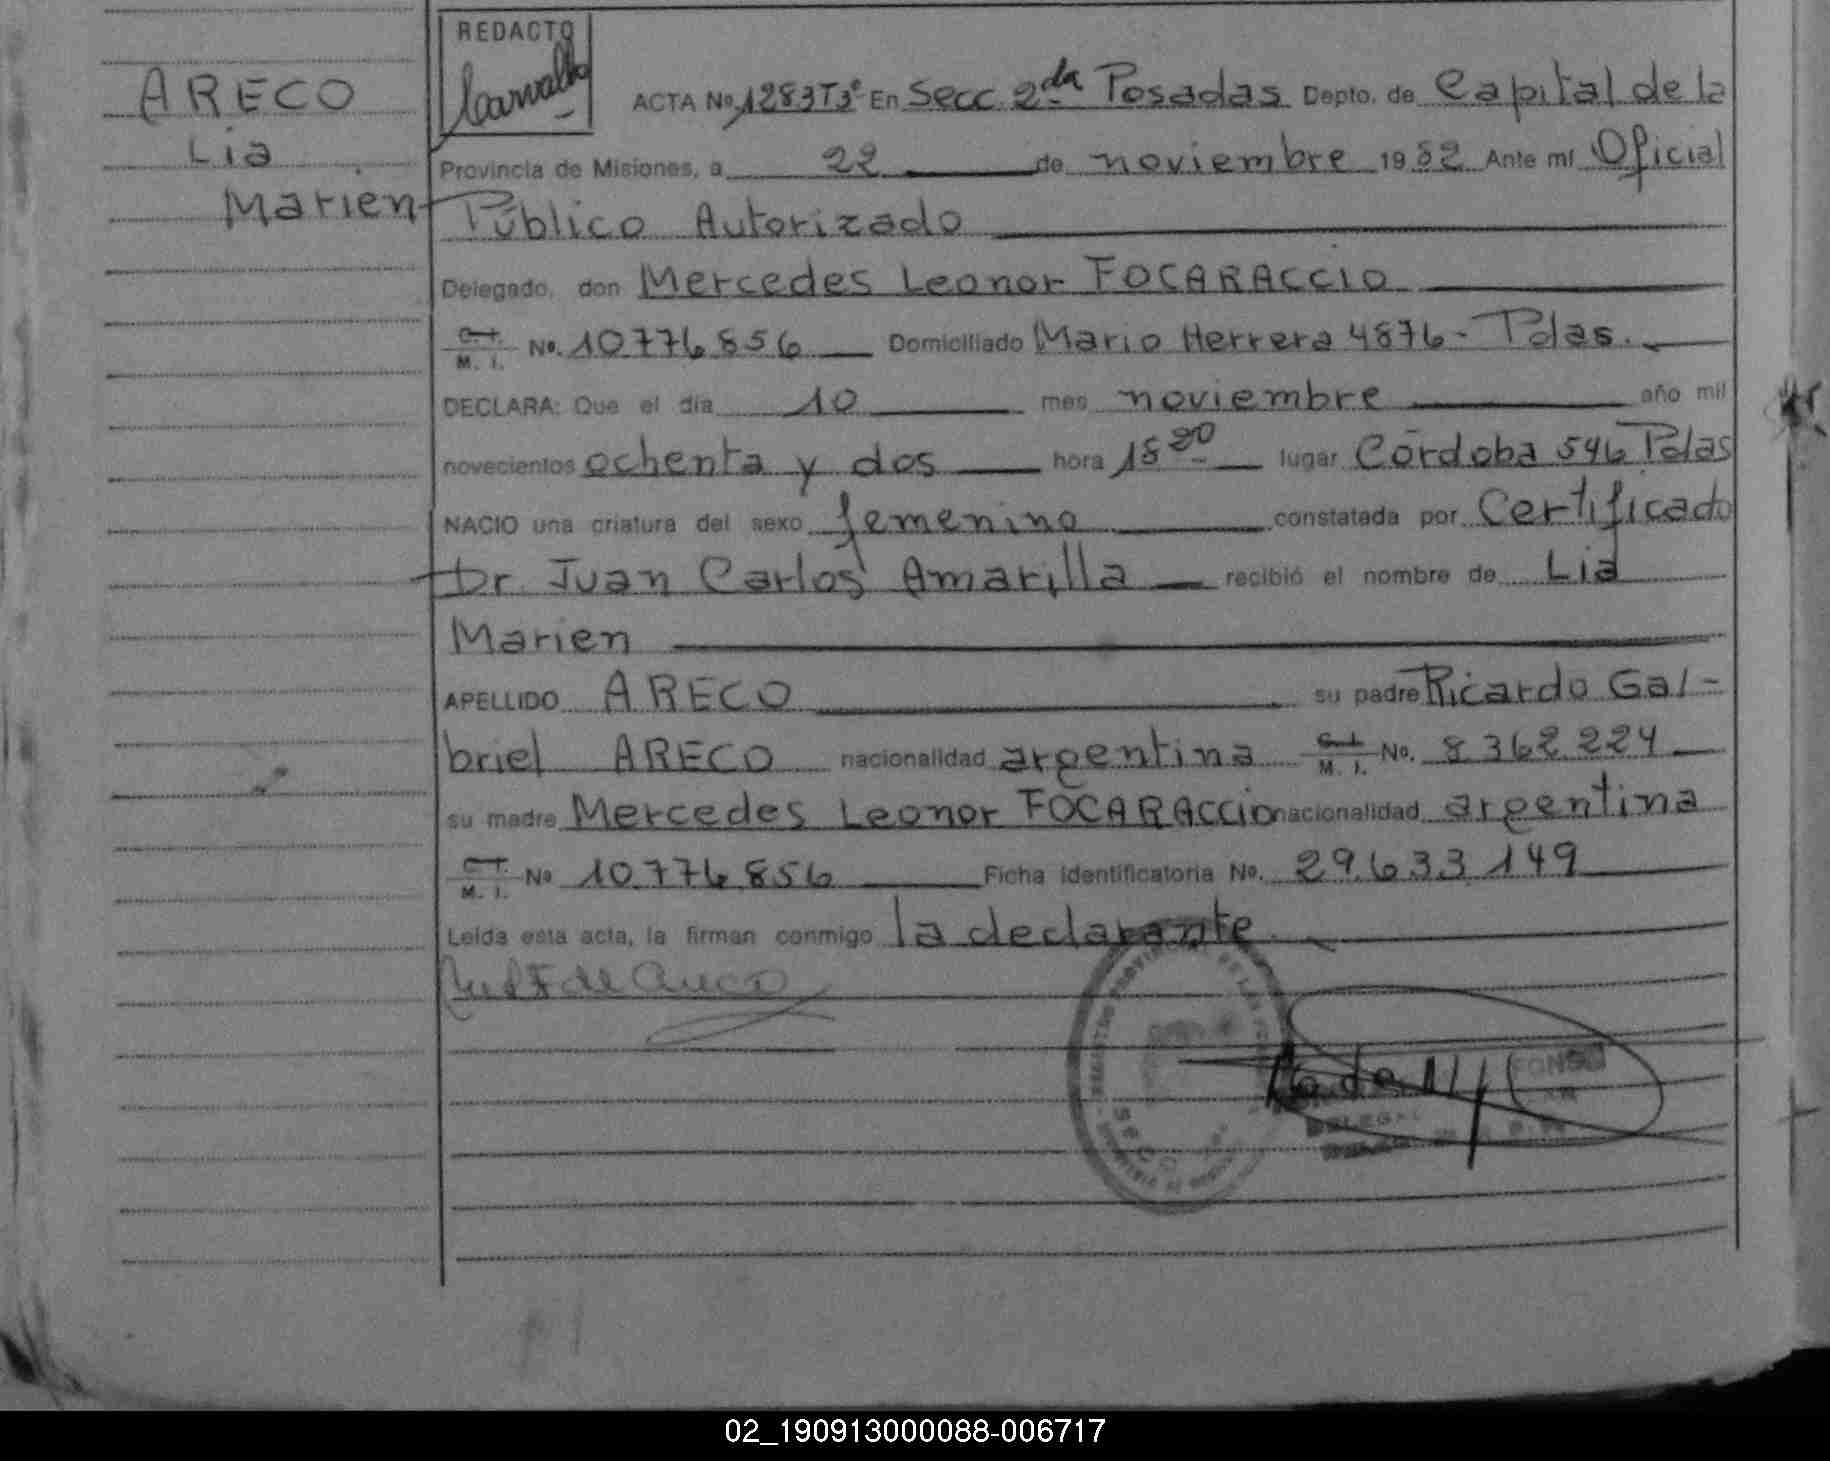 ARECO
Lia
Marien
REDACTO
Carvallo
ACTA No. 1283T3º En Secc. 2da Posadas Depto. de Capital de la
Provincia de Misiones, a 22 de noviembre 1982 Ante mí Oficial
Público Autorizado
Delegado, don Mercedes Leonor FOCARACCIO
C. I. M. I. No. 10776856 Domiciliado Mario Herrera 4876 - Pdas.
DECLARA: Que el día 10 mes noviembre año mil
novecientos ochenta y dos hora 18 lugar Córdoba 546 Pdas
NACIO una criatura del sexo femenino constatada por Certificado
Dr. Juan Carlos Amarilla recibió el nombre de Lia
Marien
APELLIDO ARECO su padre Ricardo Ga/-
briel ARECO nacionalidad argentina C. I. M. I. No. 8.362.224
su madre Mercedes Leonor FOCARACCIO nacionalidad argentina
C. I. M. I. No 10.776.856 Ficha identificatoria No. 29.633.149
Leída esta acta, la firman conmigo la declarante.
F de Areco
SECC
DELEGA
02_190913000088-006717